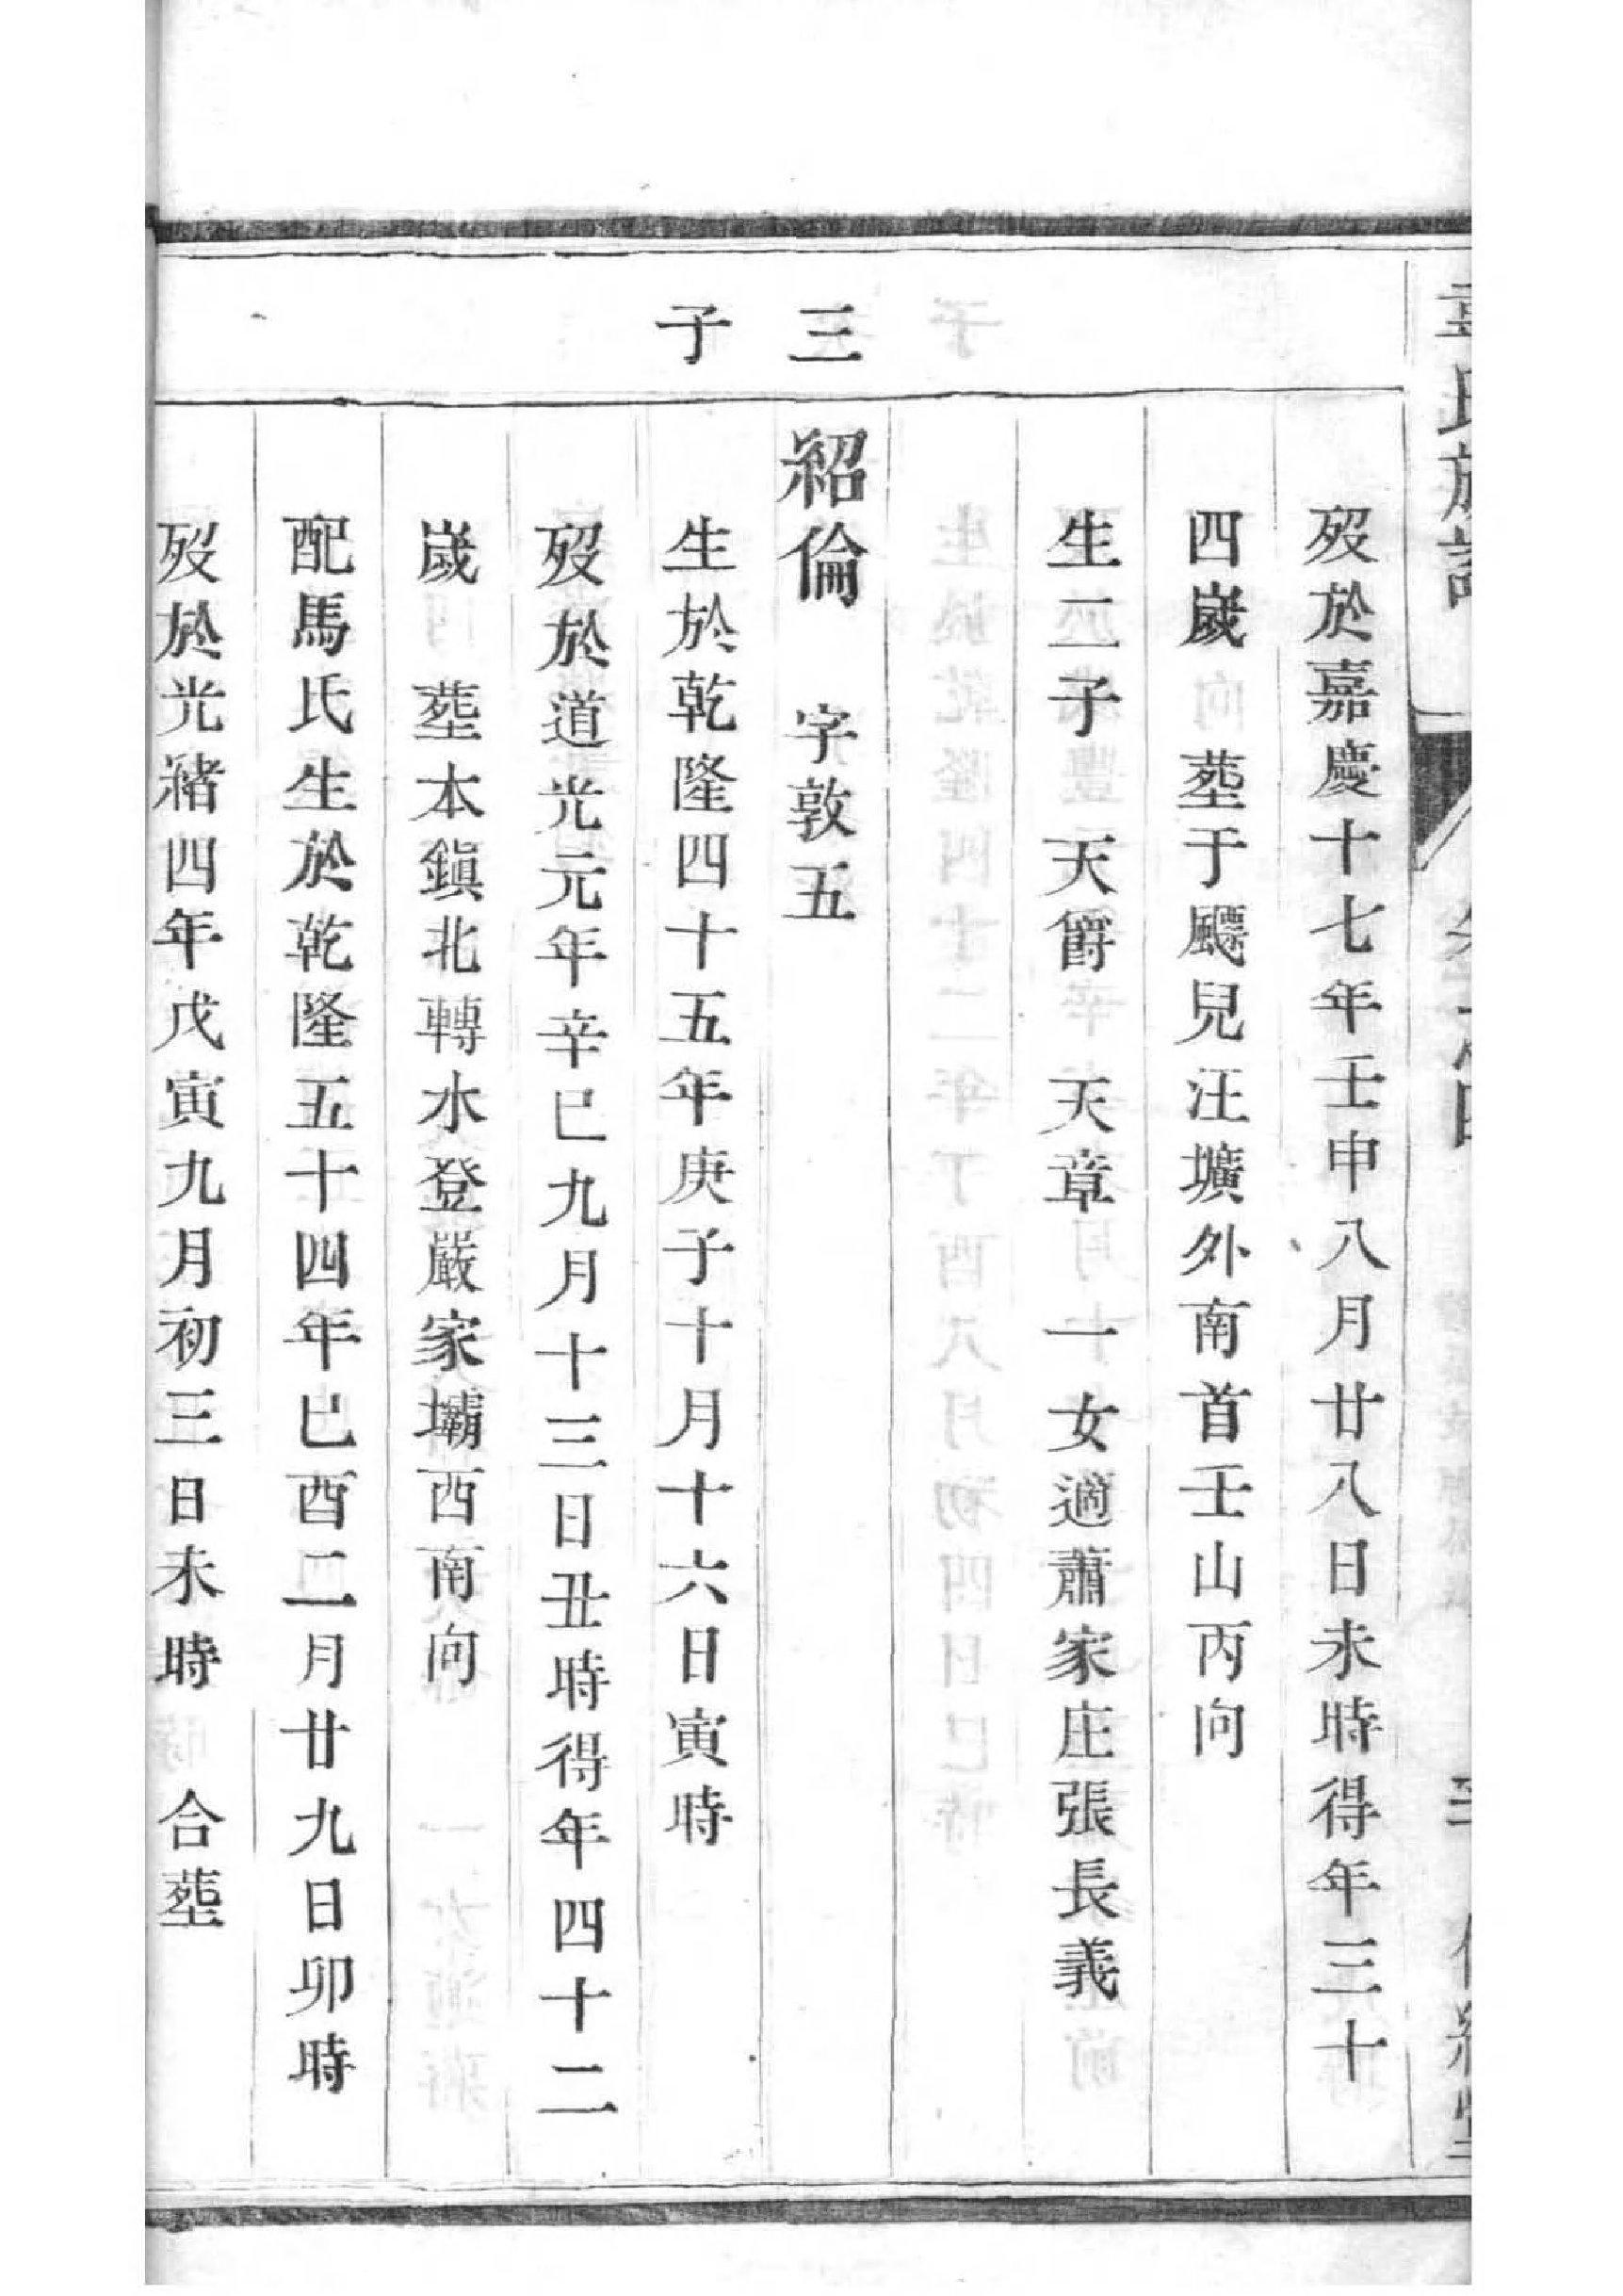 歿於嘉慶十七年壬申八月廿八日未時得年三十
四歲 葬于飃兒汪壙外南首壬山丙向
生二子 天爵 天章 一女適蕭家庄張長義
三
紹倫 字敦五
子
生於乾隆四十五年庚子十月十六日寅時
歿於道光元年辛巳九月十三日丑時得年四十二
歲 葬本鎭北轉水登嚴家壩西南向
配馬氏生於乾隆五十四年巳酉二月廿九日卯時
歿於光緒四年戊寅九月初三日未時 合葬